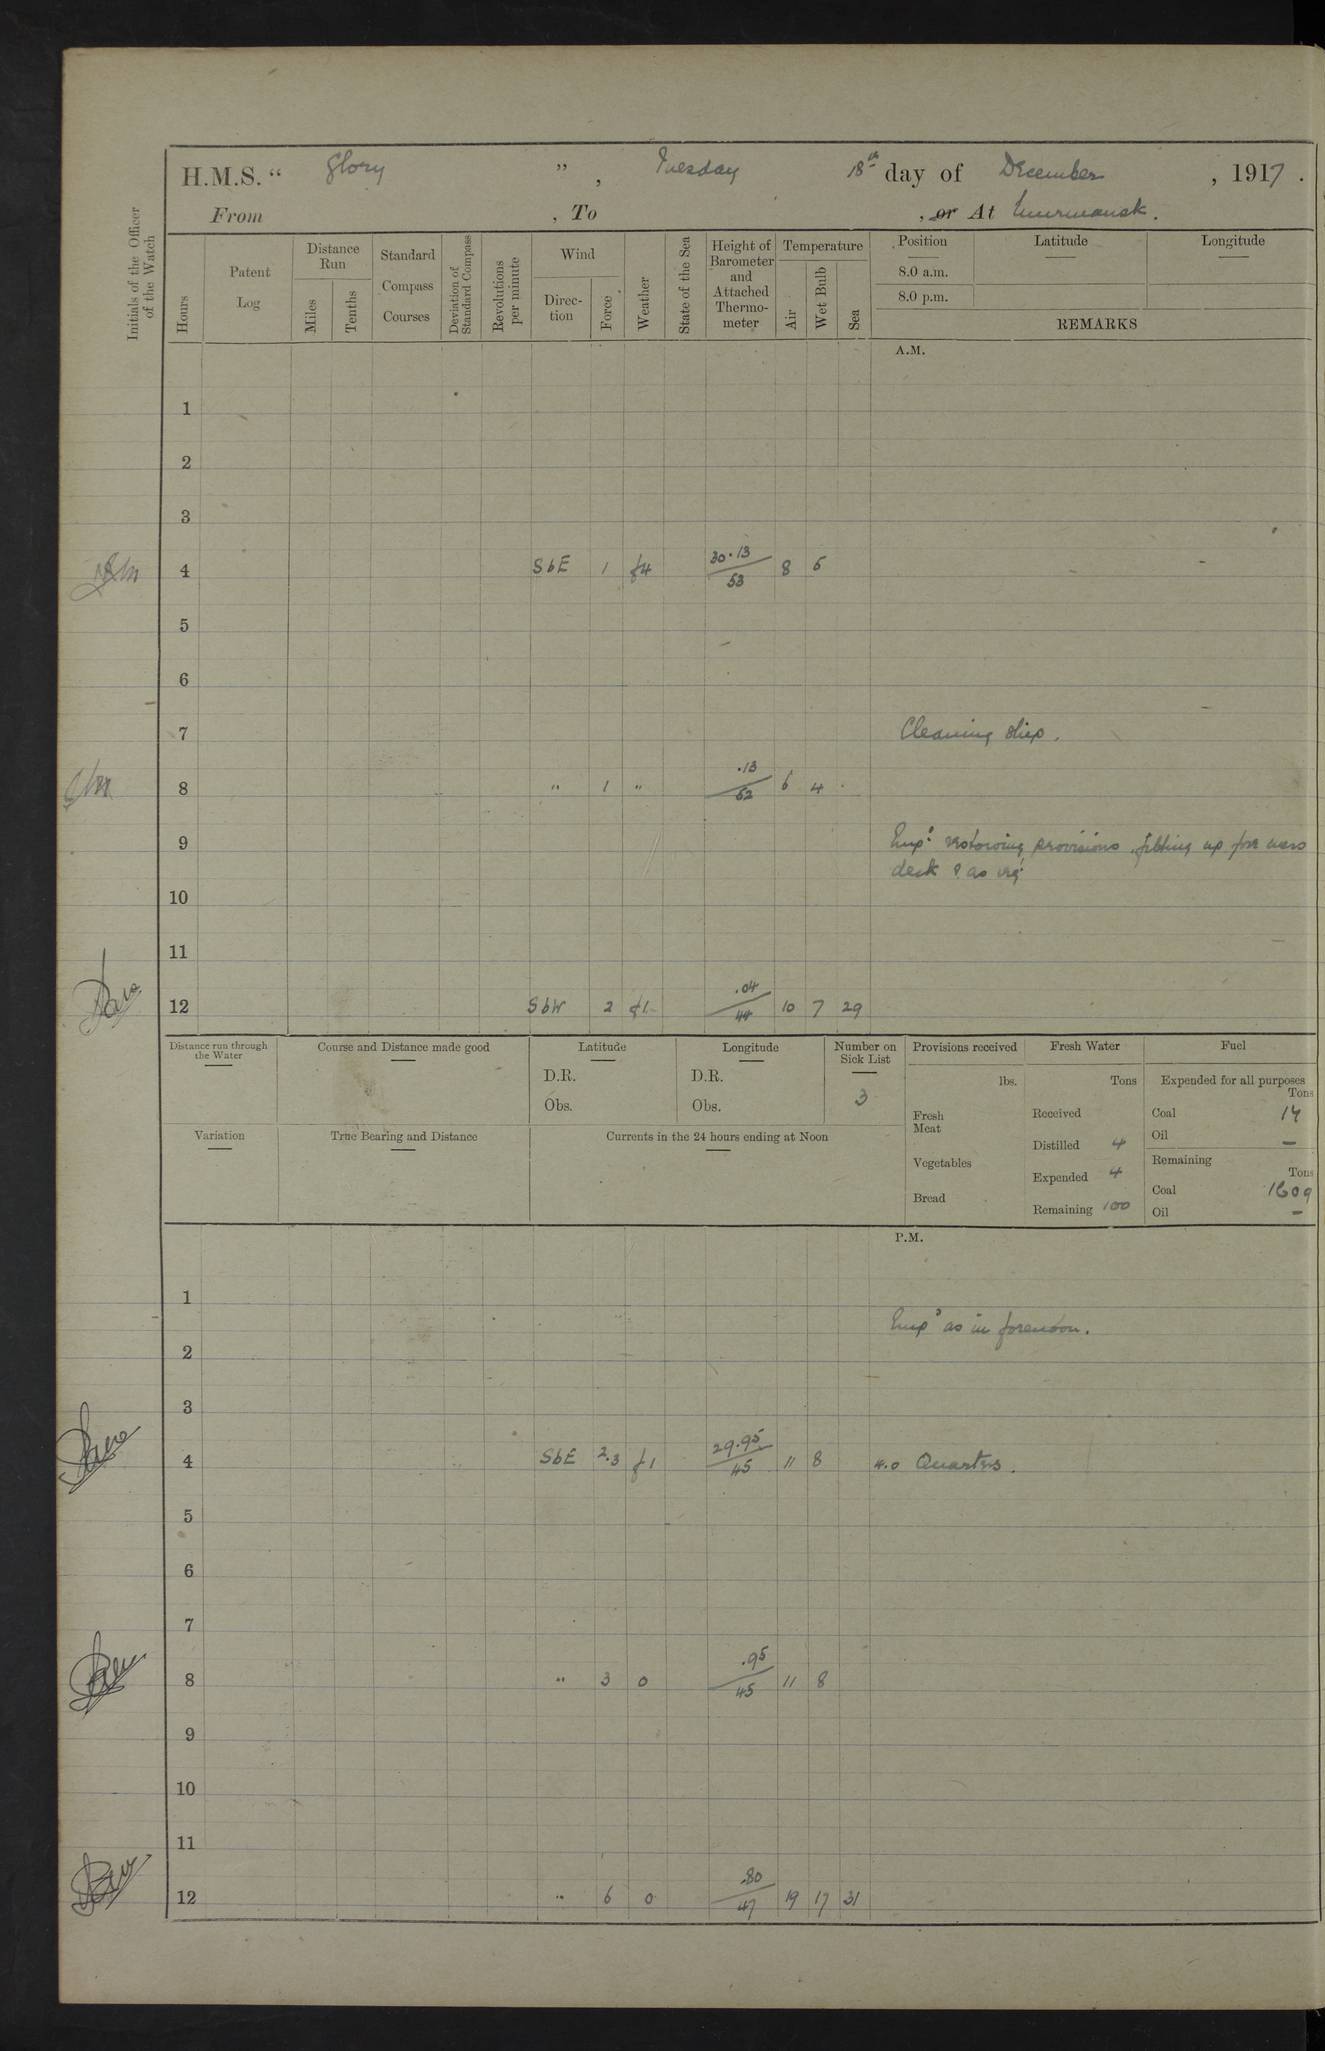 H.M.S. “ Glory ” , Tuesday 18th day of December , 1917 .
From , To , or At Murmansk .
Initials of the Officer of the Watch
Hours
Patent Log
Distance Run
Miles
Tenths
Standard Compass Courses
Deviation of Standard Compass
Revolutions per minute
Wind
Direc-tion
Force
Weather
State of the Sea
Height of Barometer and Attached Thermo-meter
Temperature
Air
Wet Bulb
Sea
Position
Latitude
Longitude
8.0 a.m.
8.0 p.m.
REMARKS
A.M.
1
2
3
4 SbE 1 f4 30.13 53 8 5
5
6
7 Cleaning ship.
8 " 1 " .13 52 6 4
9 Empd restowing provisions, fitting up fore mess
deck & as req.
10
11
12 SbW 2 f1 .04 44 10 7 29
Distance run through the Water
Course and Distance made good
Latitude
D.R.
Obs.
Longitude
D.R.
Obs.
Number on Sick List
3
Provisions received
lbs.
Fresh Meat
Vegetables
Bread
Fresh Water
Tons
Received
Distilled 4
Expended 4
Remaining 100
Fuel
Expended for all purposes
Tons
Coal 14
Oil —
Remaining
Tons
Coal 1609
Oil —
Variation
True Bearing and Distance
Currents in the 24 hours ending at Noon
P.M.
1
Empd as in forenoon.
2
3
4 SbE 2.3 f1 29.95 45 11 8 4.0 Quarters.
5
6
7
8 " 3 o .95 45 11 8
9
10
11
12 " 6 o .80 47 19 17 31